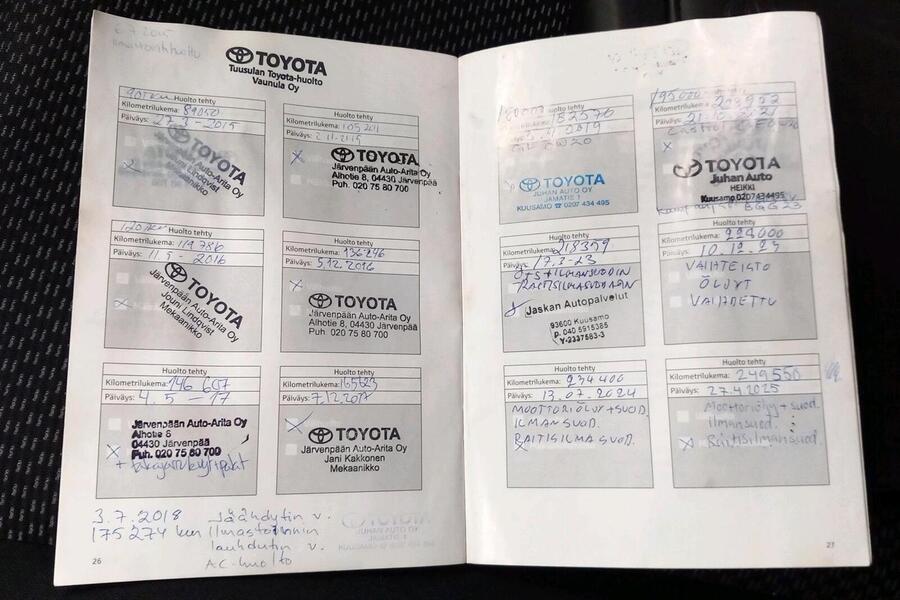 6.7.2015
Ilmastointihuolto
TOYOTA
Tuusulan Toyota-huolto
Vaunula Oy
90TKM Huolto tehty
Kilometrilukema: 89050
Päiväys: 27.8-2015
TOYOTA
Järvenpään Auto-Arita Oy
Jouni Lindqvist
Mekaanikko
Huolto tehty
Kilometrilukema: 105201
Päiväys:
TOYOTA
Järvenpään Auto-Arita Oy
Alhotie 8, 04430 Järvenpää
Puh. 020 75 80 700
120TKM Huolto tehty
Kilometrilukema: 119786
Päiväys: 11.5-2016
TOYOTA
Järvenpään Auto-Arita Oy
Jouni Lindqvist
Mekaanikko
Huolto tehty
Kilometrilukema: 136246
Päiväys: 5.12.2016
TOYOTA
Järvenpään Auto-Arita Oy
Alhotie 8, 04430 Järvenpää
Puh. 020 75 80 700
Huolto tehty
Kilometrilukema: 146 607
Päiväys: 4.5-17
Järvenpään Auto-Arita Oy
Alhotie 8
04430 Järvenpää
Puh. 020 75 80 700
+ takajarrulevyt+palat
Huolto tehty
Kilometrilukema: 165623
Päiväys: 7.12.2017
TOYOTA
Järvenpään Auto-Arita Oy
Jani Kakkonen
Mekaanikko
3.7.2018 Jäähdytin v.
175274 km Ilmastoinnin
lauhdutin v.
AC-huolto
26
Huolto tehty
Kilometrilukema: 182576
Päiväys: 2019
0W20
TOYOTA
JUHAN AUTO OY
JAMATIE 1
KUUSAMO ☎ 0207 434 495
195000 Huolto tehty
Kilometrilukema: 203922
Päiväys: 21.10.2021
Castrol 0W20
TOYOTA
Juhan Auto
HEIKKI
Kuusamo 0207434495
Huolto tehty
Kilometrilukema: 218359
Päiväys: 17.3-23
ÖLJY+S+ILMANSUODIN
RAITISILMASUODATIN
Jaskan Autopalvelut
93600 Kuusamo
p. 040 5915385
Y-2337583-3
Huolto tehty
Kilometrilukema: 224000
Päiväys: 10.12.23
VAIHTEISTO
ÖLJYT
VAIHDETTU
Huolto tehty
Kilometrilukema: 234400
Päiväys: 13.07.2024
MOOTTORIÖLJY+SUOD.
ILMANSUOD.
RAITISILMASUOD.
Huolto tehty
Kilometrilukema: 249550
Päiväys: 27.4.2025
Moottoriöljy+suod.
Ilmansuod.
Raitisilmansuod.
27